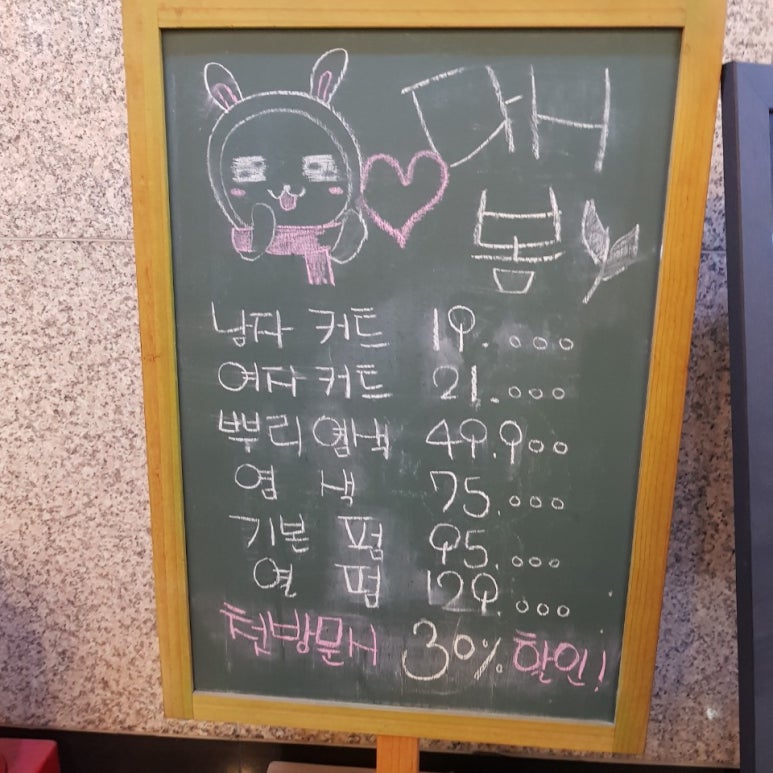 대
봄
남자 커트 19.000
여자 커트 21.000
뿌리 염색 49.900
염 색 75.000
기본 펌 95.000
열 펌 129.000
첫방문시 30% 할인!